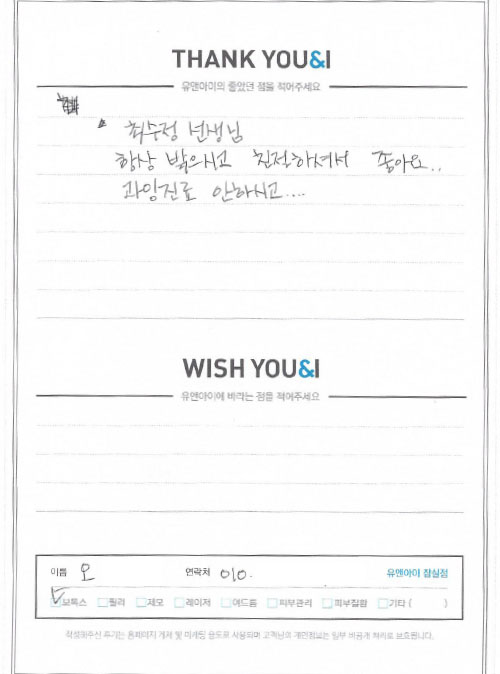 THANK YOU&I
유앤아이의 좋았던 점을 적어주세요
최수정 선생님
항상 밝으시고 친절하셔서 좋아요..
과잉진료 안하시고....
WISH YOU&I
유앤아이에 바라는 점을 적어주세요
이름 오 연락처 010. 유앤아이 잠실점
보톡스 필러 제모 레이저 여드름 피부관리 피부질환 기타 ( )
작성해주신 후기는 홈페이지 게재 및 마케팅 용도로 사용되며 고객님의 개인정보는 일부 비공개 처리로 보호됩니다.